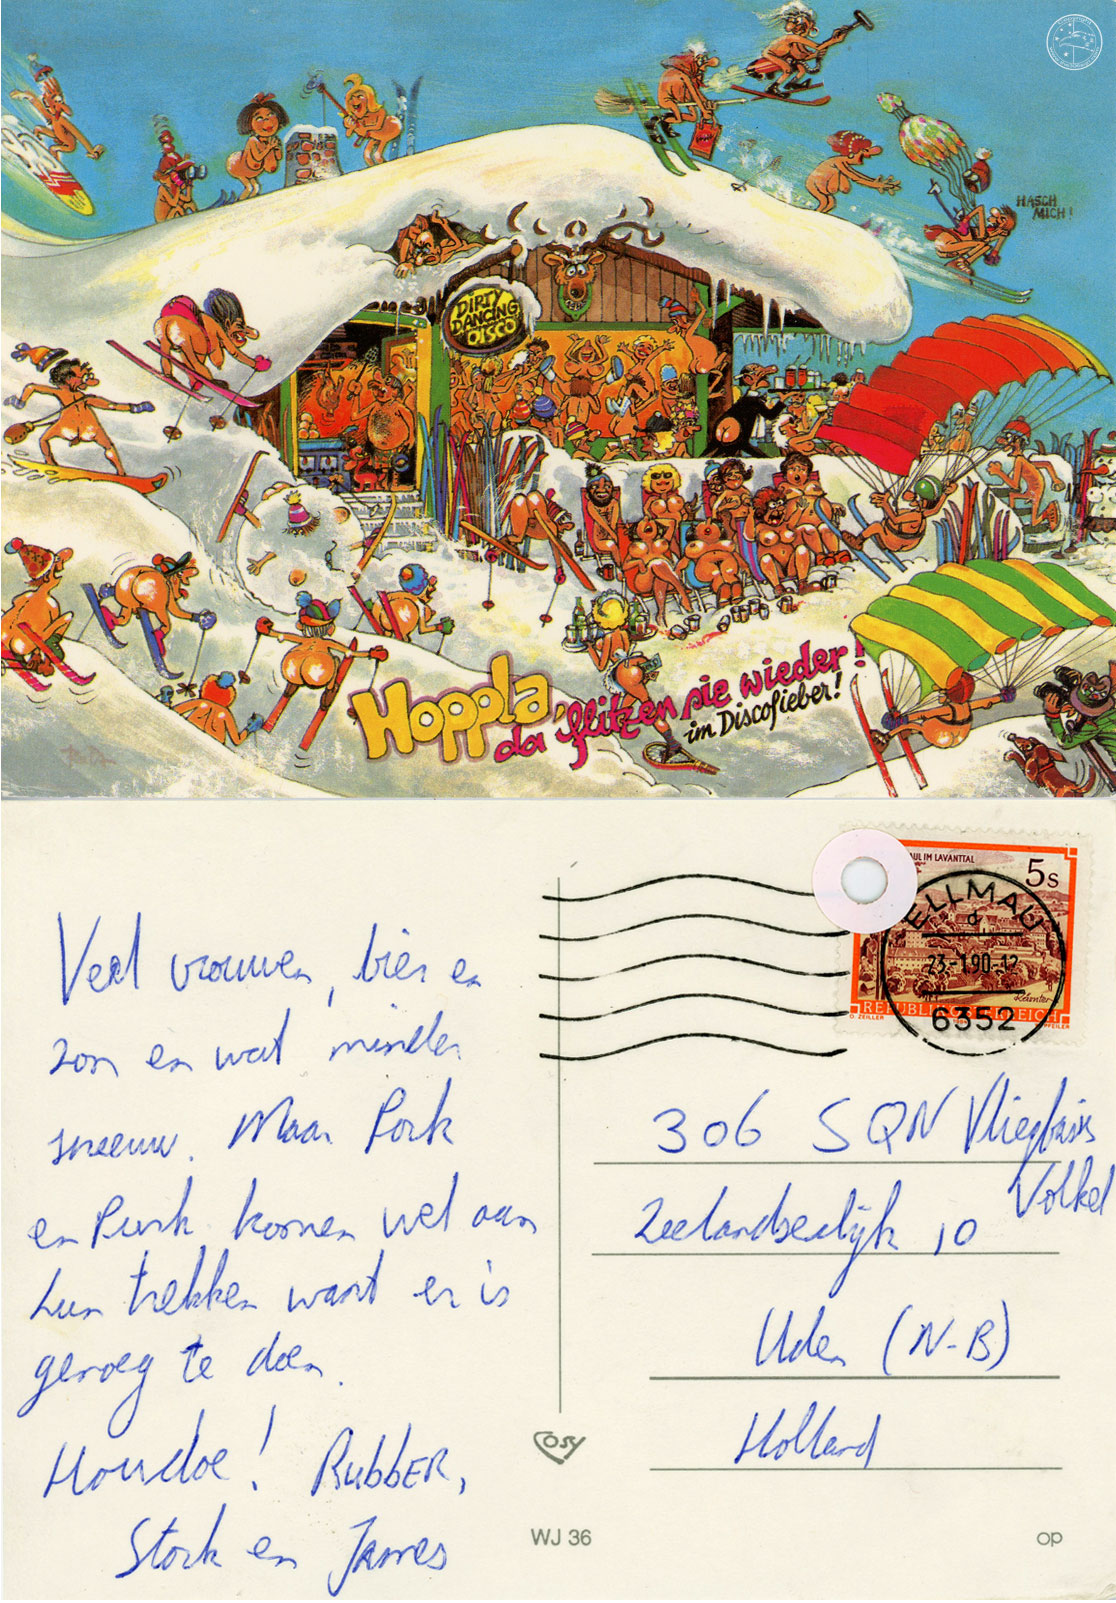 HASCH
MICH!
DIRTY
DANCING
DISCO
Hoppla,
da flitzen sie wieder!
im Discofieber!
Veel vrouwen, bier en
zon en wat minder
sneeuw. Maar Pork
en Punk komen wel aan
hun trekken want er is
genoeg te doen.
Houdoe! RubbER,
Stork en James
COSY
WJ 36
op
5s
UL IM LAVANTTAL
REPUBLIK ÖSTERREICH
O. ZEILER
PFEILER
ELLMAU
d
23.-1.90-12
6352
306 SQN Vliegbasis
Volkel
Zeelandsedijk 10
Uden (N-B)
Holland